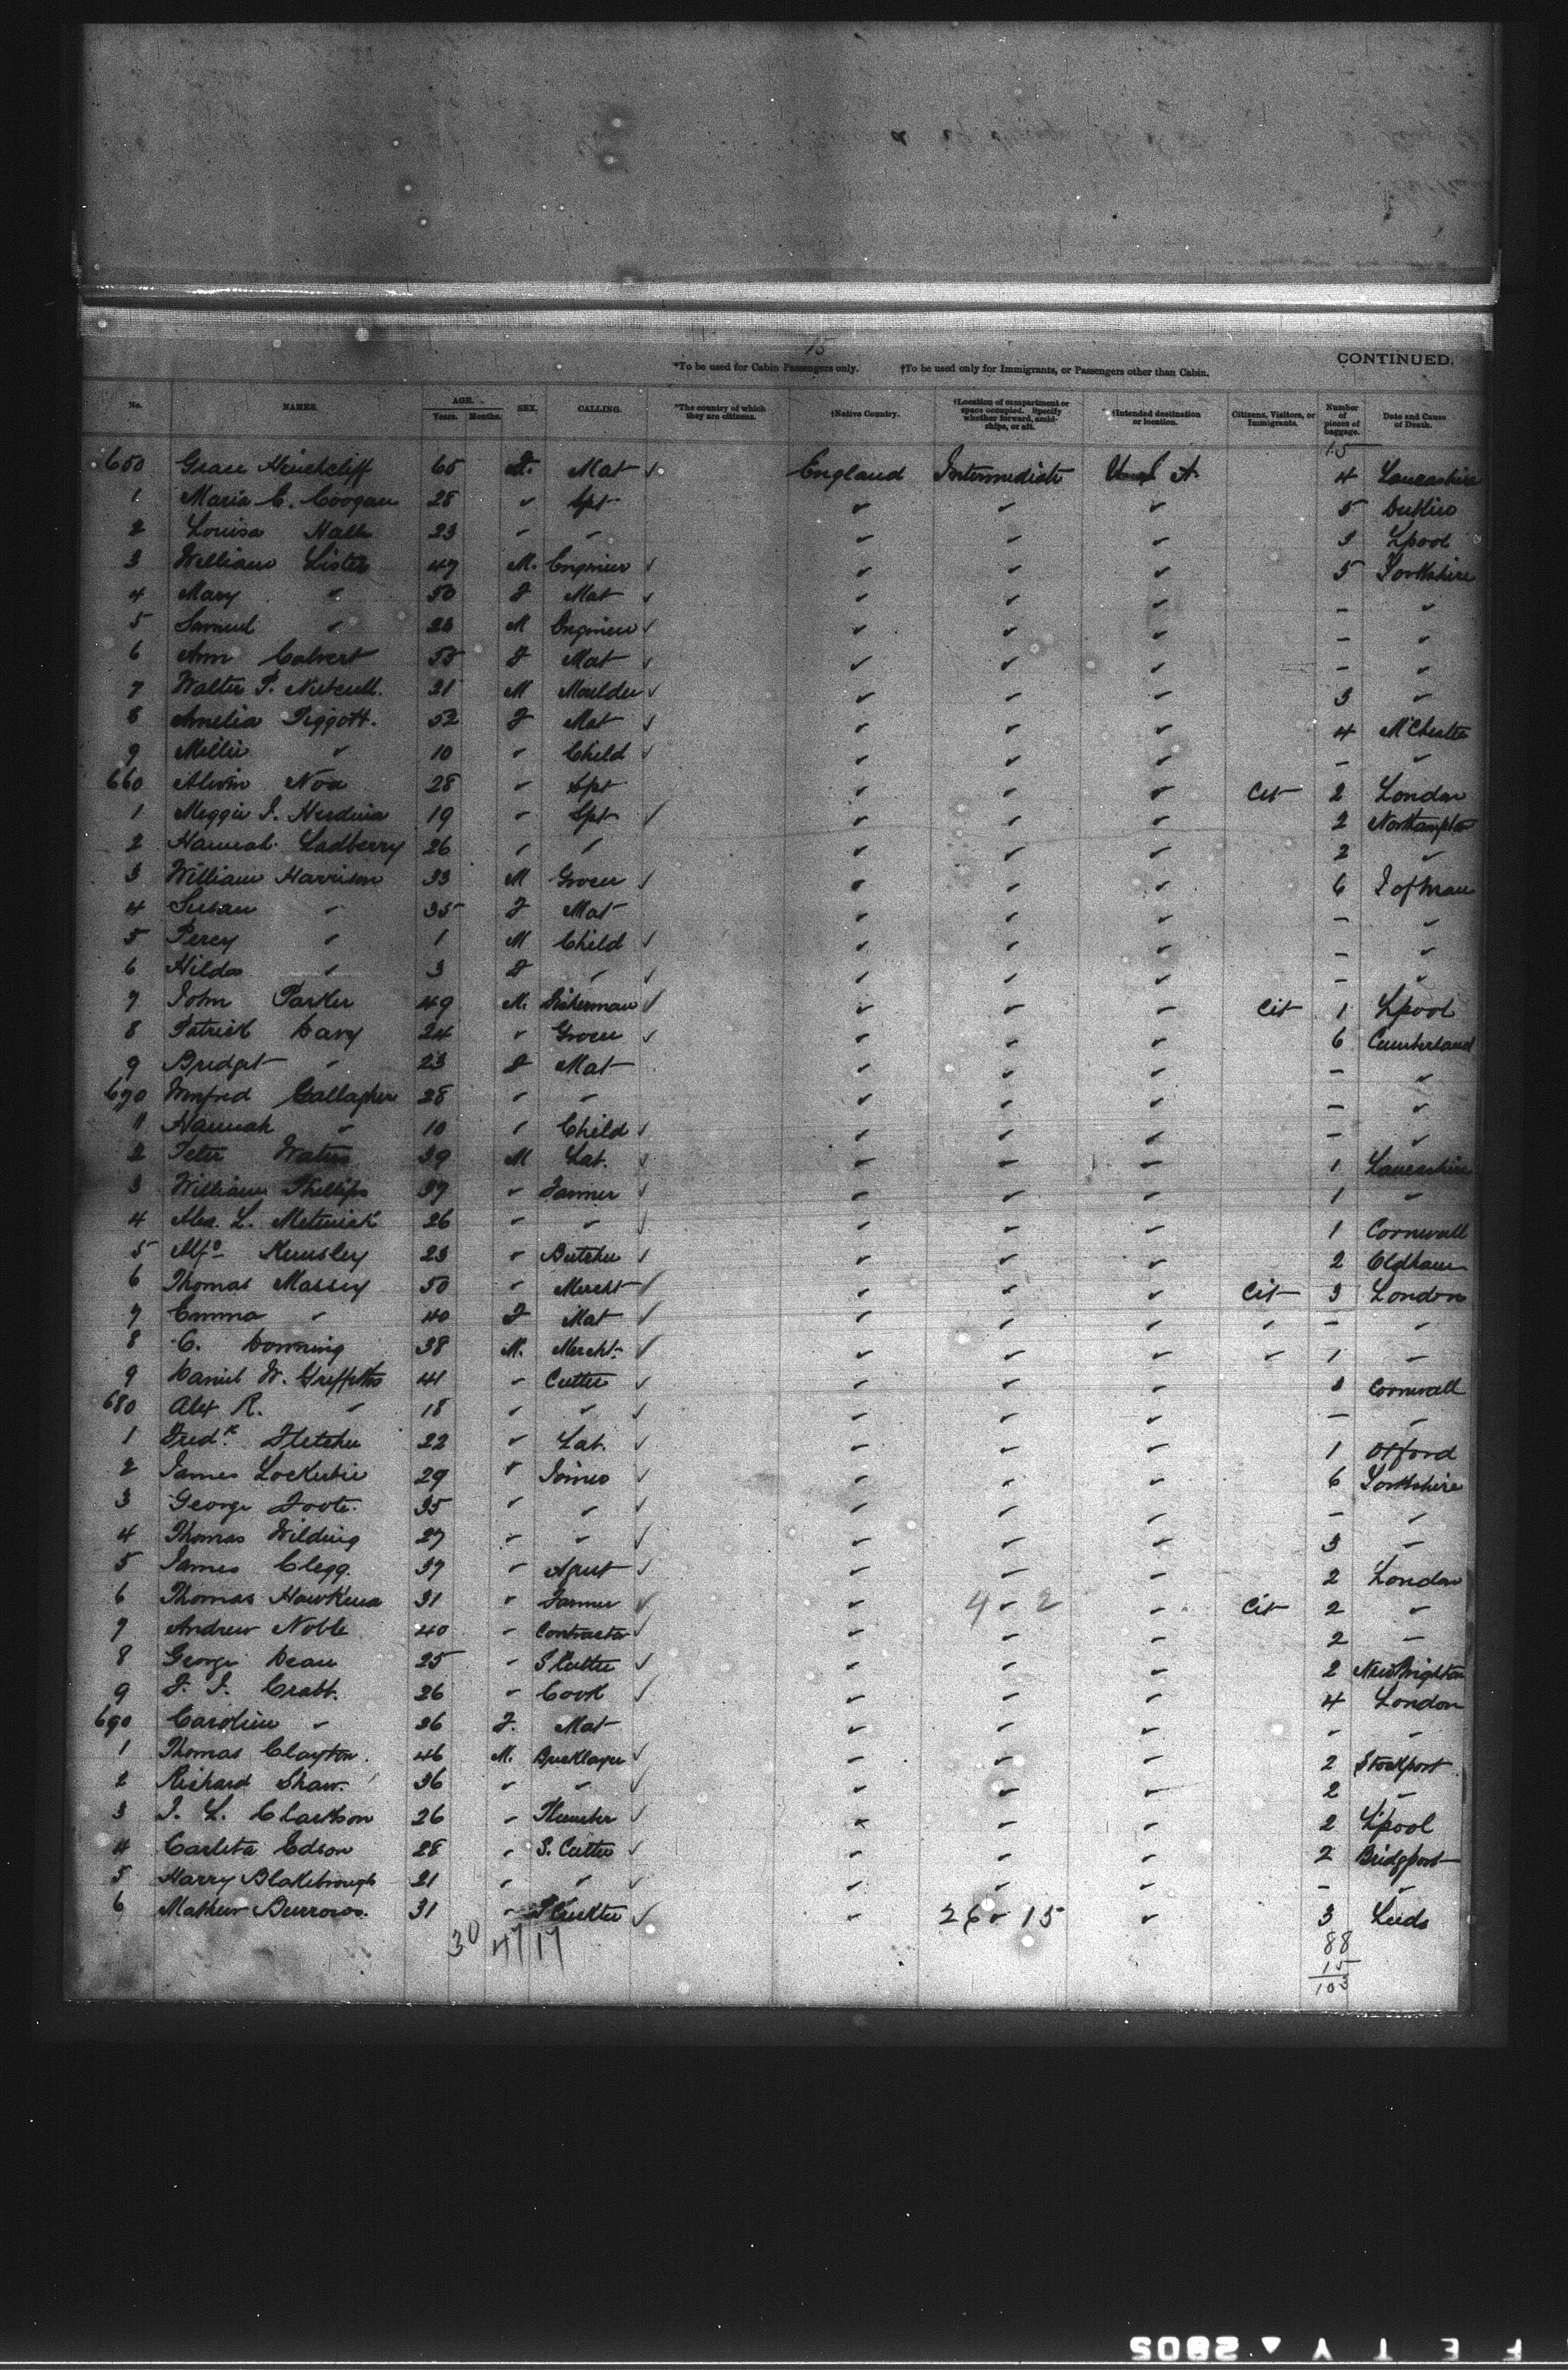 15
CONTINUED.
*To be used for Cabin Passengers only. †To be used only for Immigrants, or Passengers other than Cabin.
No. NAMES. AGE. Years. Months. SEX. CALLING. *The country of which they are citizens. †Native Country. †Location of compartment or space occupied. Specify whether forward, amidships, or aft. †Intended destination or location. Citizens, Visitors, or Immigrants. Number of pieces of baggage. Date and Cause of Death.
15
650 Grace Hinchcliff 65 F. Mat ✓ England Intermediate U S A 4 Lancashire
1 Maria C. Coogan 28 " Spt " " " 5 Dublin
2 Louisa Hall 23 " " " " " 3 Lpool
3 William Lister 47 M. Engineer ✓ " " " 5 Yorkshire
4 Mary " 50 F Mat ✓ " " " - "
5 Samuel " M Engineer ✓ " " " - "
6 Ann Calvert 55 F Mat ✓ " " " - "
7 Walter P. 31 M Moulder ✓ " " " 3 "
8 Amelia Piggott. 52 F Mat ✓ " " " 4 M'Chester
9 Millie " 10 " Child ✓ " " " - "
660 Noa 28 " Spt " " " Cit 2 London
1 Meggie J. 19 " Spt ✓ " " " 2 Northampton
2 Hannah Ladberry 26 " " " " " 2 "
3 William Harrison 33 M Grocer ✓ " " " 6 I of Man
4 Susan " 35 F Mat " " " - "
5 Percy " 1 M Child ✓ " " " - "
6 Hilda " 3 F " ✓ " " " - "
7 John Parker 49 M. Fisherman ✓ " " " Cit 1 Lpool
8 Patrick Davy 24 " Grocer ✓ " " " 6 Cumberland
9 Bridget " 23 F Mat " " " - "
670 Winfred Gallagher 28 " " " " " - "
1 Hannah " 10 " Child ✓ " " " - "
2 Peter Waters 39 M Lab. ✓ " " " 1 Lancashire
3 William Phillips 37 " Farmer ✓ " " " 1 "
4 Alex. L. 26 " " ✓ " " " 1 Cornwall
5 Alfd Kunsley 23 " Butcher ✓ " " " 2 Oldham
6 Thomas Massey 50 " Mercht ✓ " " " Cit 3 London
7 Emma " 40 F Mat ✓ " " " " - "
8 C. Downing 38 M. Mercht. ✓ " " " " 1 "
9 Daniel W. Griffiths 41 " Cutter ✓ " " " Cornwall
680 Alex R. " 18 " " ✓ " " " - "
1 Fredk. Fletcher 22 " Lab. ✓ " " " 1 Oxford
2 James Lockerbie 29 " Joiner ✓ " " " 6 Yorkshire
3 George Foote. 35 " " ✓ " " " - "
4 Thomas Wilding 27 " " ✓ " " " 3 "
5 James Clegg. 37 " Agent ✓ " " " 2 London
6 Thomas Hawkins 31 " Farmer ✓ " 4 " 2 " Cit 2 "
7 Andrew Noble 40 " Contractor ✓ " " " 2 "
8 George Dean 25 " S Cutter ✓ " " " 2 New Brighton
9 F. J. Crabb. 26 " Cook ✓ " " " 4 London
690 Caroline " 26 F. Mat " " " " "
1 Thomas Clayton. 46 M. Bricklayer ✓ " " " 2 Stockport.
2 Richard Shaw. 36 " " ✓ " " " 2 "
3 J. L. Clarkson 26 " Plumber ✓ " " " 2 Lpool
4 Carleta Edson 28 " S. Cutter ✓ " " " 2 Bridgport
5 Harry Blakebrough 21 " " ✓ " " " - "
6 Mathew Burrows. 31 " ✓ " 26 " 15 " 3 Leeds
30 47/17 88
15
103
FETY ▲ 2805